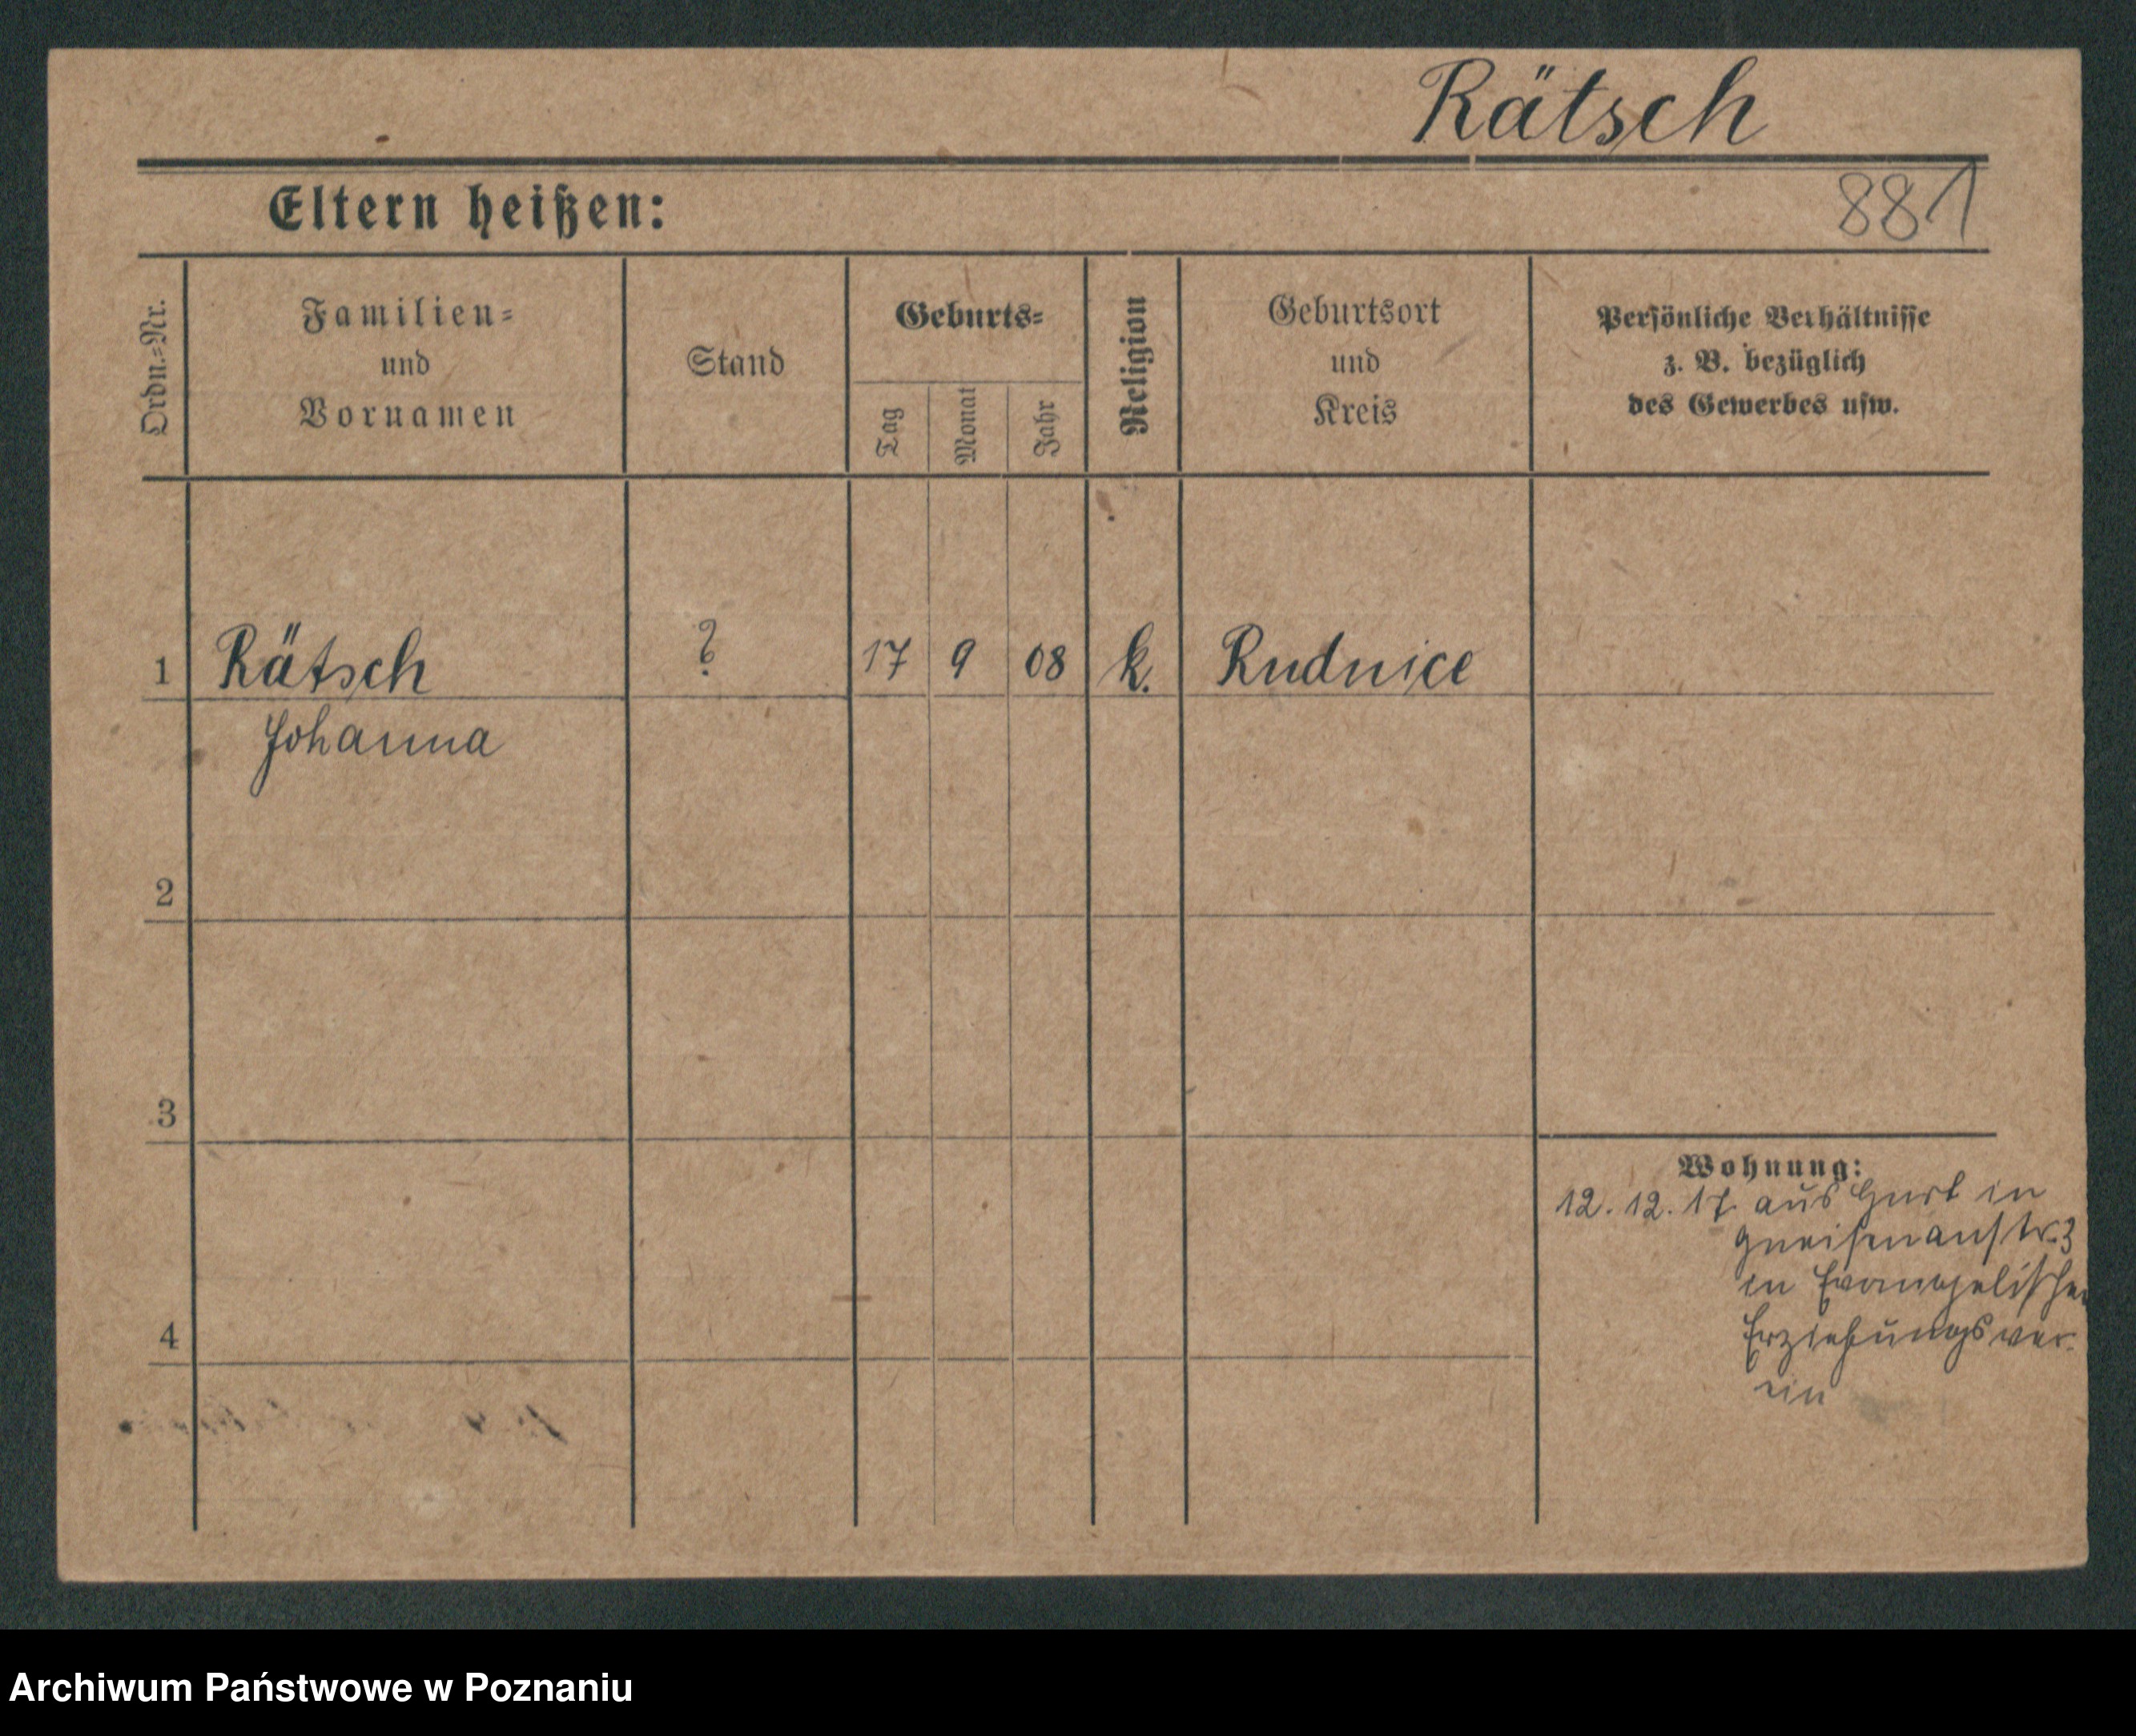 Rätsch
Eltern heißen:
881
Ordn.=Nr.
Familien=
und
Vornamen
Stand
Geburts=
Tag
Monat
Jahr
Religion
Geburtsort
und
Kreis
Persönliche Verhältnisse
z. B. bezüglich
des Gewerbes usw.
1 Rätsch ? 17 9 08 k. Rudnice
Johanna
2
3
4
Wohnung:
12.12.17. aus in
Gneisenaustr. 3
in Evangelischen
Erziehungsver-
ein
Archiwum Państwowe w Poznaniu